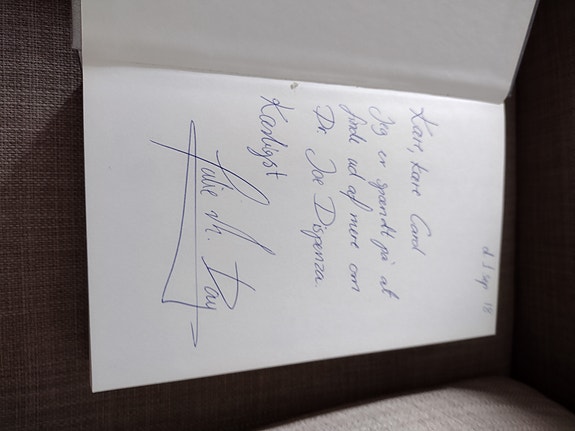 d 1 sep 18
Kære, kære Carol
Jeg er spændt på at
finde ud af mere om
Dr. Joe Dispenza.
Kærligst
Julie M. Day